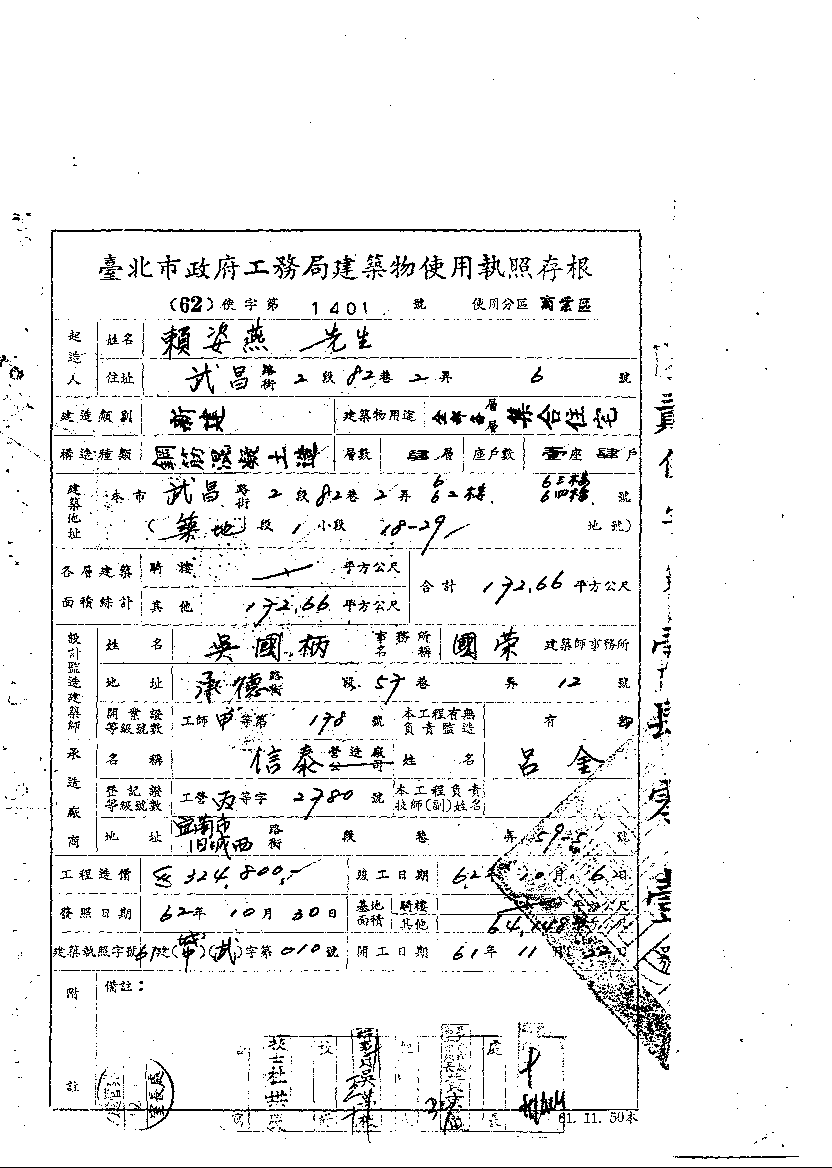 臺北市政府工務局建築物使用執照存根
(62)使字第 1401 號 使用分區 商業區
起造人 姓名 賴姿燕 先生
住址 武昌 路街 2 段 82 巷 2 弄 6 號
建造類別 新建 建築物用途 全部各層層集合住宅
構造種類 鋼筋混凝土造 層數 肆層 座戶數 壹座肆戶
建築地址 本市 武昌 路街 2 段 82 巷 2 弄 6 6二樓 6三樓 6四樓 號
(築地 段 1 小段 18-29 地號)
各層建築面積綜計 騎樓 平方公尺 合計 172.66 平方公尺
其他 172.66 平方公尺
設計監造建築師 姓名 吳國柄 事務所名稱 國榮 建築師事務所
地址 承德 路街 段 57 巷 弄 12 號
開業證等級號數 工師 甲 等第 178 號 本工程有無負責監造 有
承造廠商 名稱 信泰 營造廠公司 姓名 呂金
登記證等級號數 工營 丙 等字 2780 號 本工程負責技師(副)姓名
地址 宜蘭市舊城西 路街 段 巷 弄 59-5 號
工程造價 324,800 竣工日期 62年 10月 6日
發照日期 62年 10月 30日 基地面積 騎樓 平方公尺
其他 64.148
建築執照字號 61建( )(武)字第 010 號 開工日期 61年 11月 22日
附註 備註:
61. 11. 50本